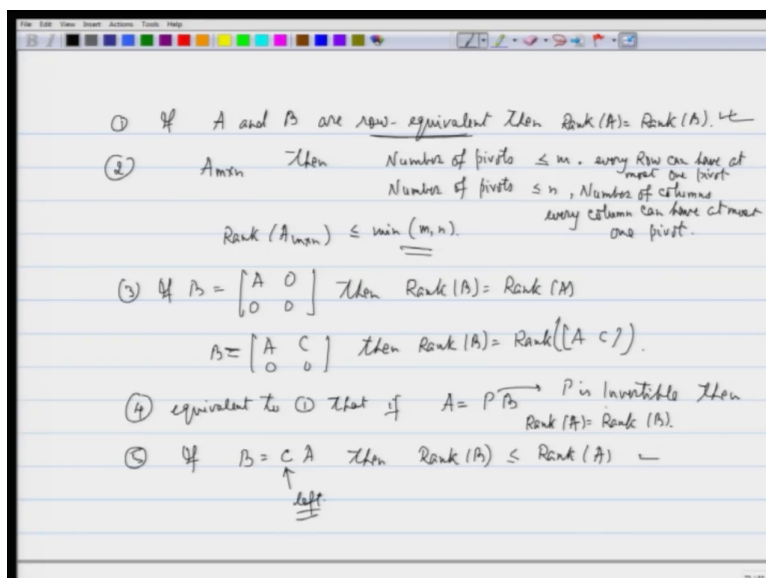 File Edit View Insert Actions Tools Help
① If A and B are row-equivalent then Rank(A) = Rank(B).
② A_{m×n} then Number of pivots ≤ m. every Row can have at most one pivot
Number of pivots ≤ n, Number of columns
every column can have at most one pivot.
Rank (A_{m×n}) ≤ min (m, n).
③ If B = [A 0
0 0] then Rank (B) = Rank (A)
B = [A C
0 0] then Rank (B) = Rank([A C]).
④ equivalent to ① that if A = PB → P is Invertible then
Rank (A) = Rank (B).
⑤ If B = C A then Rank (B) ≤ Rank (A)
↑
left